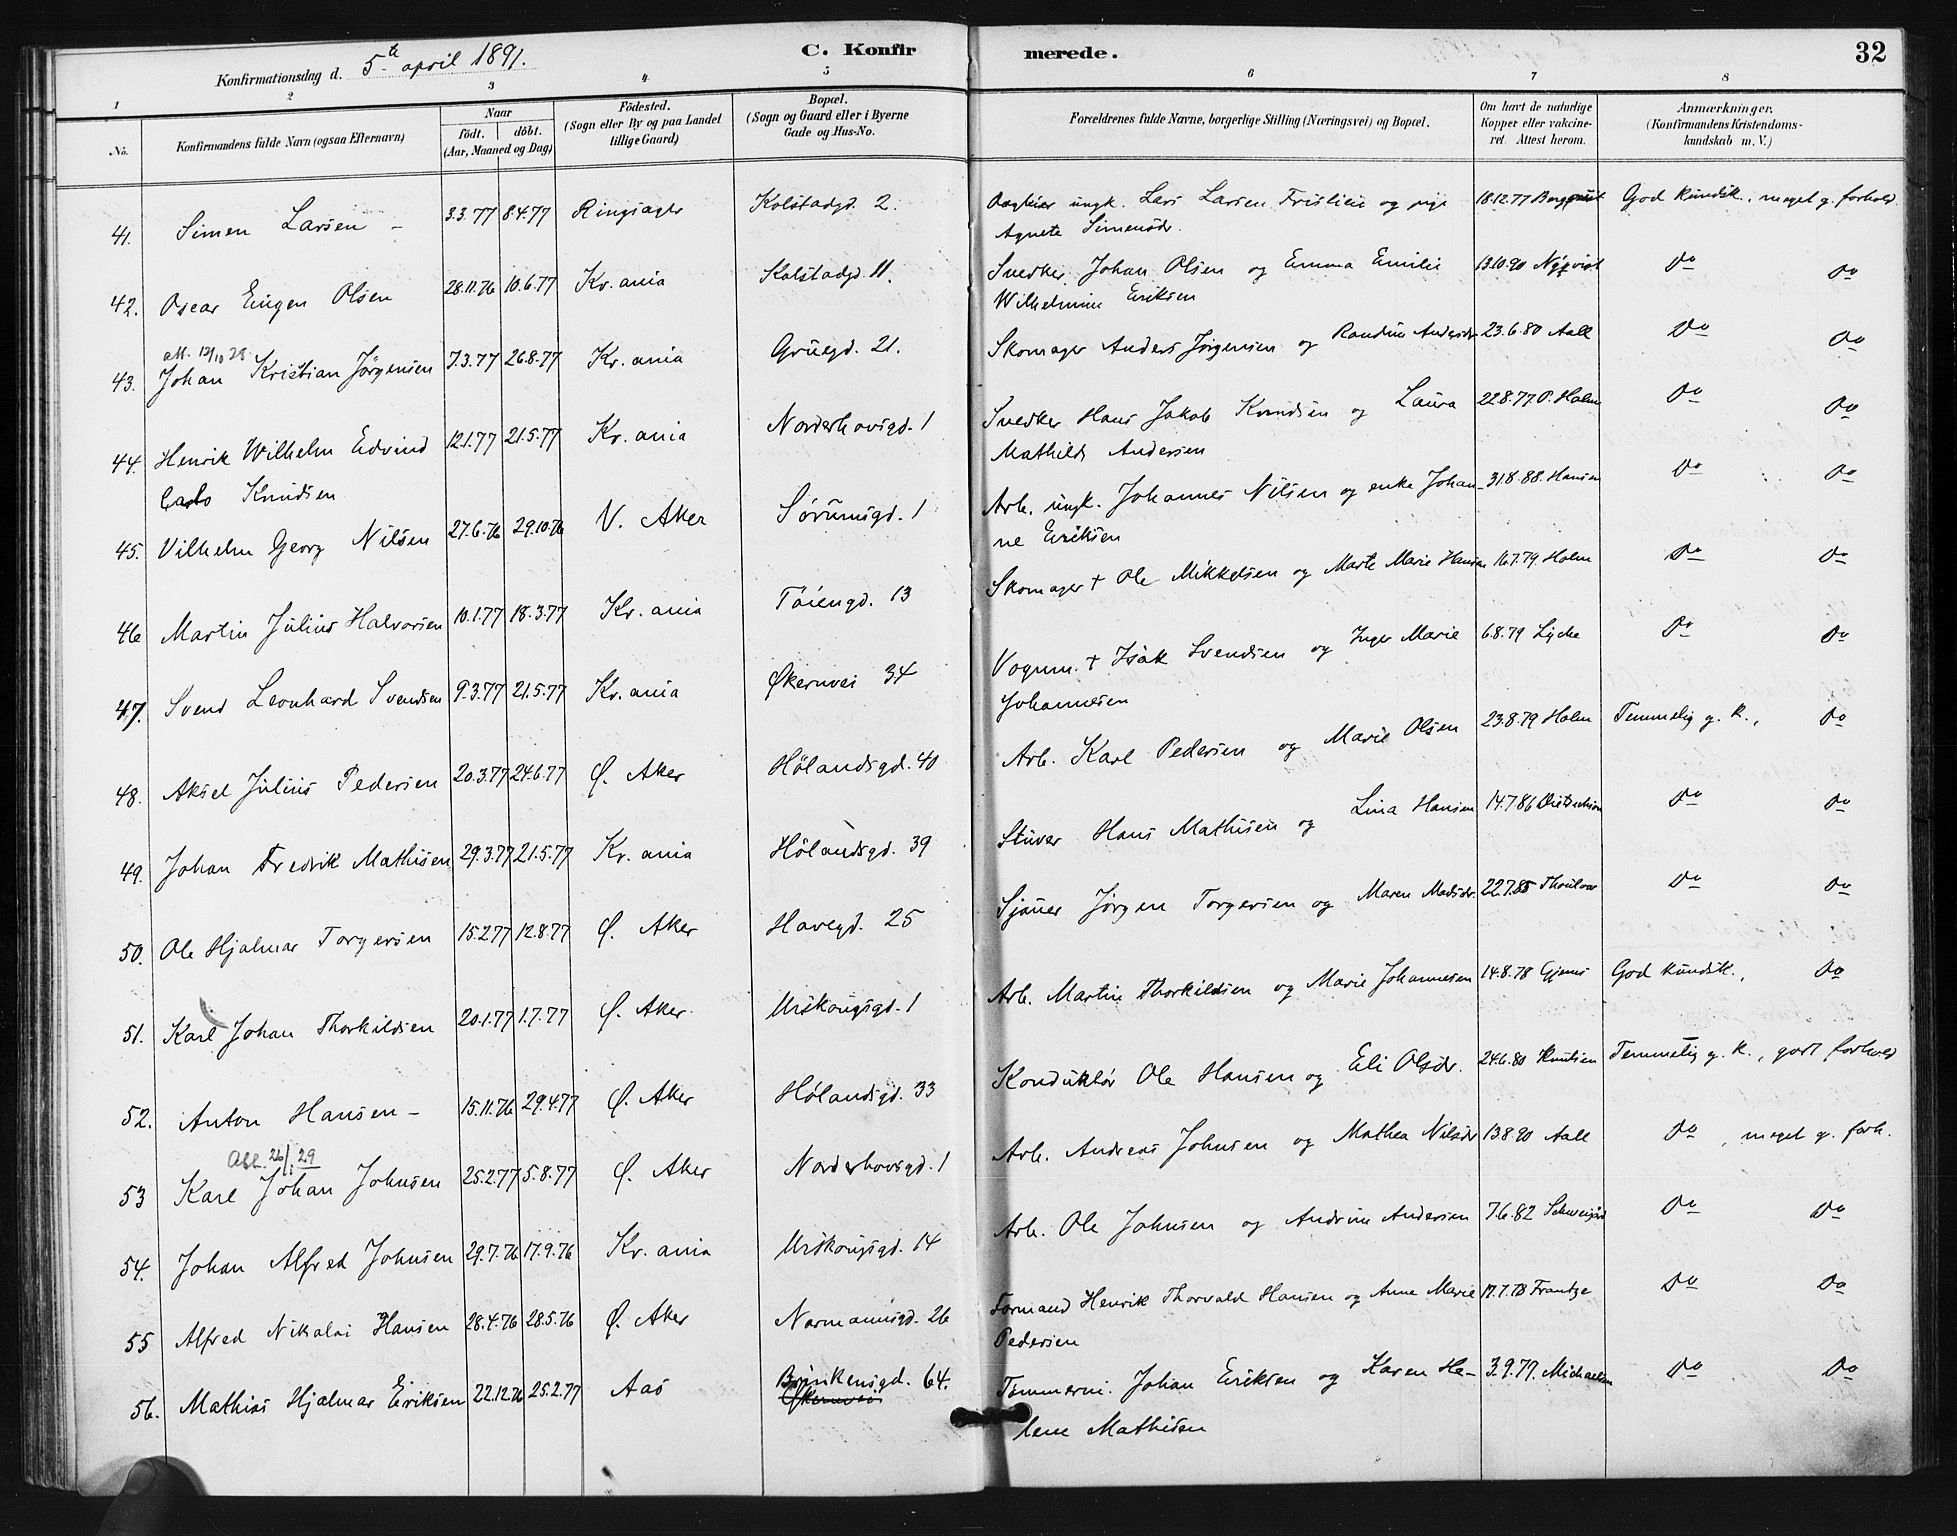 Konfirmationsdag d. 5te april 1891. C. Konfirmerede. 32
1 2 3 4 5 6 7 8
No. Konfirmandens fulde Navn (ogsaa Efternavn) Naar født. døbt. (Aar, Maaned og Dag) Födested. (Sogn eller By og paa Landet tillige Gaard) Bopæl. (Sogn og Gaard eller i Byerne Gade og Hus-No. Forældrenes fulde Navne, borgerlige Stilling (Næringsvei) og Bopæl. Om havt de naturlige Kopper eller vakcineret. Attest herom. Anmærkninger. (Konfirmandens Kristendomskundskab m. V.)
41. Simen Larsen – 3.3.77 8.4.77 Ringsager Kolstadgd. 2. ungk. Lars Larsen og pige 18.12.77 God kundsk., meget g. forhold.
Agnete Simensdr.
42. Oscar Eugen Olsen 28.11.76 10.6.77 Kr.ania Kolstadgd. 11. Snedker Johan Olsen og Emma Emilie 13.10.90 Nyqvist Do Do
Wilhelmine Eriksen
att. 12/10 28.
43. Johan Kristian Jørgensen 7.3.77 26.8.77 Kr.ania Gruegd. 21. Skomager Anders Jørgensen og Randine Andersdr 23.6.80 Aall Do Do
44. Henrik Wilhelm Edvind 12.1.77 21.5.77 Kr.ania Norderhovsgd. 1 Snedker Hans Jakob Knudsen og Laura 22.8.77 P. Holm Do Do
Carlo Knudsen Mathilde Andersen
45. Vilhelm Georg Nilsen 27.6.76 29.10.76 V. Aker Sørumsgd. 1 Arb. ungk. Johannes Nilsen og enke Johan- 31.8.88. Hansen Do Do
ne Eriksen
46 Martin Julius Halvorsen 10.1.77 18.3.77 Kr.ania Tøiengd. 13 Skomager + Ole Mikkelsen og Marte Marie Hansen 16.7.79. Holm Do Do
47. Svend Leonhard Svendsen 9.3.77 21.5.77 Kr.ania Økernvei 34 Vognm. + Isak Svendsen og Inger Marie 6.8.79 Lyche Do Do
Johannesen
48. Aksel Julius Pedersen 20.3.77 24.6.77 Ø. Aker Hølandsgd. 40 Arb. Karl Pedersen og Marie Olsen 23.8.79 Holm Temmelig g. k., Do
49. Johan Fredrik Mathisen 29.3.77 21.5.77 Kr.ania Hølandsgd. 39 Stuver Hans Mathisen og Lina Hansen 14.7.86 Do Do
50. Ole Hjalmar Torgersen 15.2.77 12.8.77 Ø. Aker Havegd. 25 Sjauer Jørgen Torgersen og Maren Madsdr. 22.7.85 Do Do
51. Karl Johan Thorkildsen 20.1.77 1.7.77 Ø. Aker Urskougsgd. 1 Arb. Martin Thorkildsen og Marie Johannesen 14.8.78 God kundsk., Do
52. Anton Hansen – 15.11.76 29.4.77 Ø. Aker Hølandsgd. 33 Konduktør Ole Hansen og Eli Olsdr. 24.6.80 Knutsen Temmelig g. k., godt forhold
att. 26/1 29
53 Karl Johan Johnsen 25.2.77 5.8.77 Ø. Aker Norderhovsgd. 1 Arb. Andreas Johnsen og Mathea Nilsdr 13.8.90 Aall Do, meget g. forh.
54. Johan Alfred Johnsen 29.7.76 17.9.76 Kr.ania Urskougsgd. 14 Arb. Ole Johnsen og Andrine Andersen 7.6.82 Do Do
55 Alfred Nikolai Hansen 28.4.76 28.5.76 Ø. Aker Normannsgd. 26 Formand Henrik Thorvald Hansen og Anne Marie 17.7.78 Frantze Do Do
Pedersen
56. Mathias Hjalmar Eriksen 22.12.76 25.2.77 Aas Brinkensgd. 64. Tømmerm. Johan Eriksen og Karen He- 3.9.79. Michaelsen Do Do
Økernvei lene Mathisen